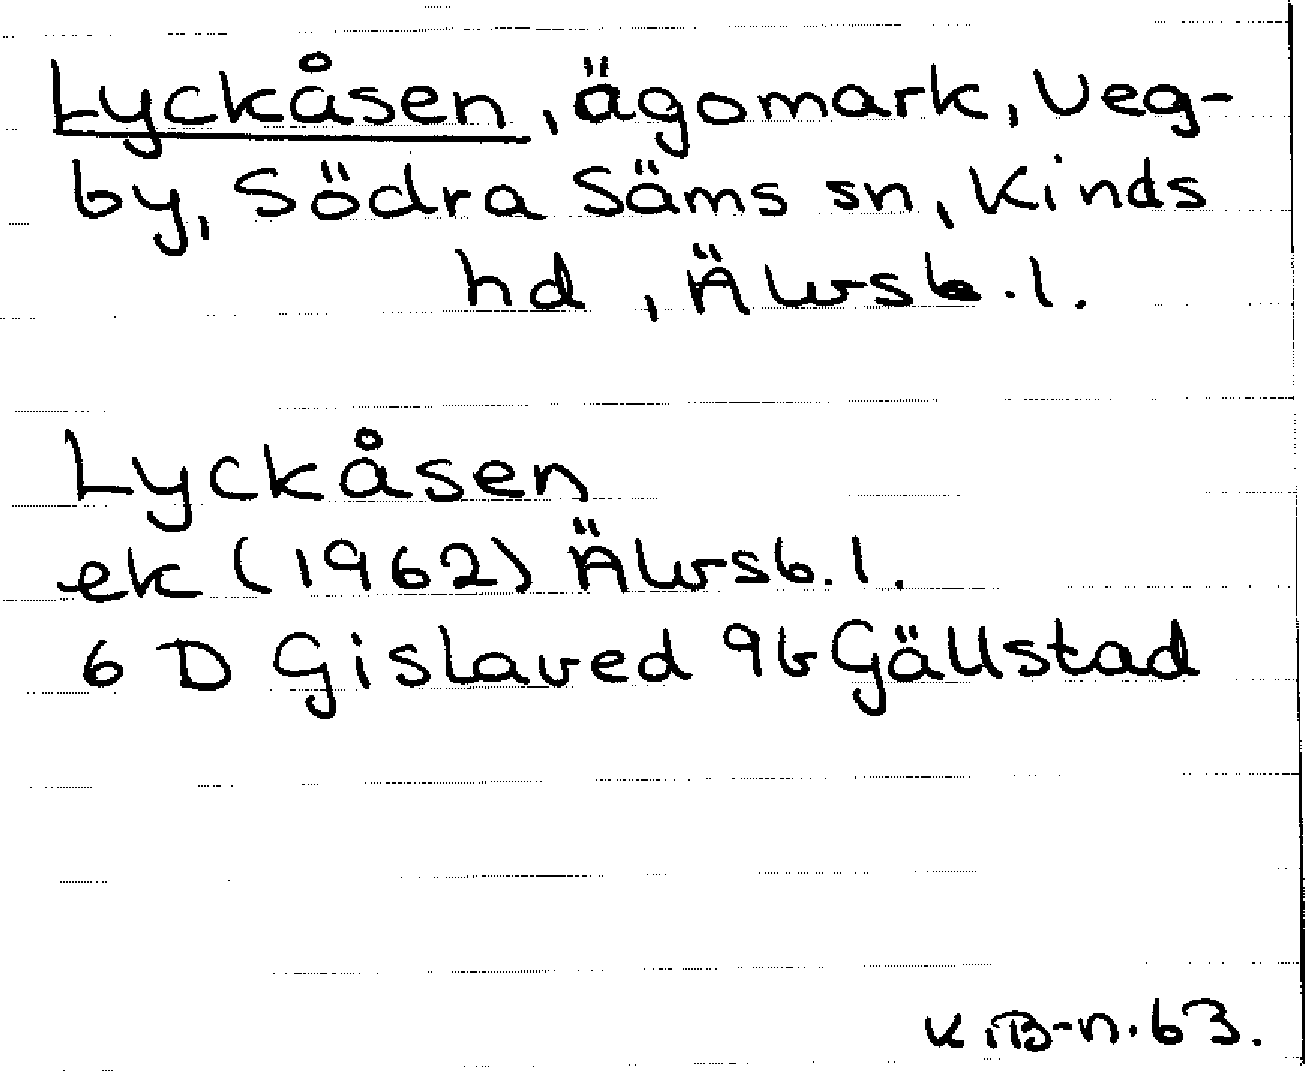 Lyckåsen, ägomark, Veg-
by, Södra Säms sn, Kinds
hd, Älvsb.l.
Lyckåsen
ek (1962) Älvsb.l.
6 D Gislaved 9b Gällstad
K.B-n.63.